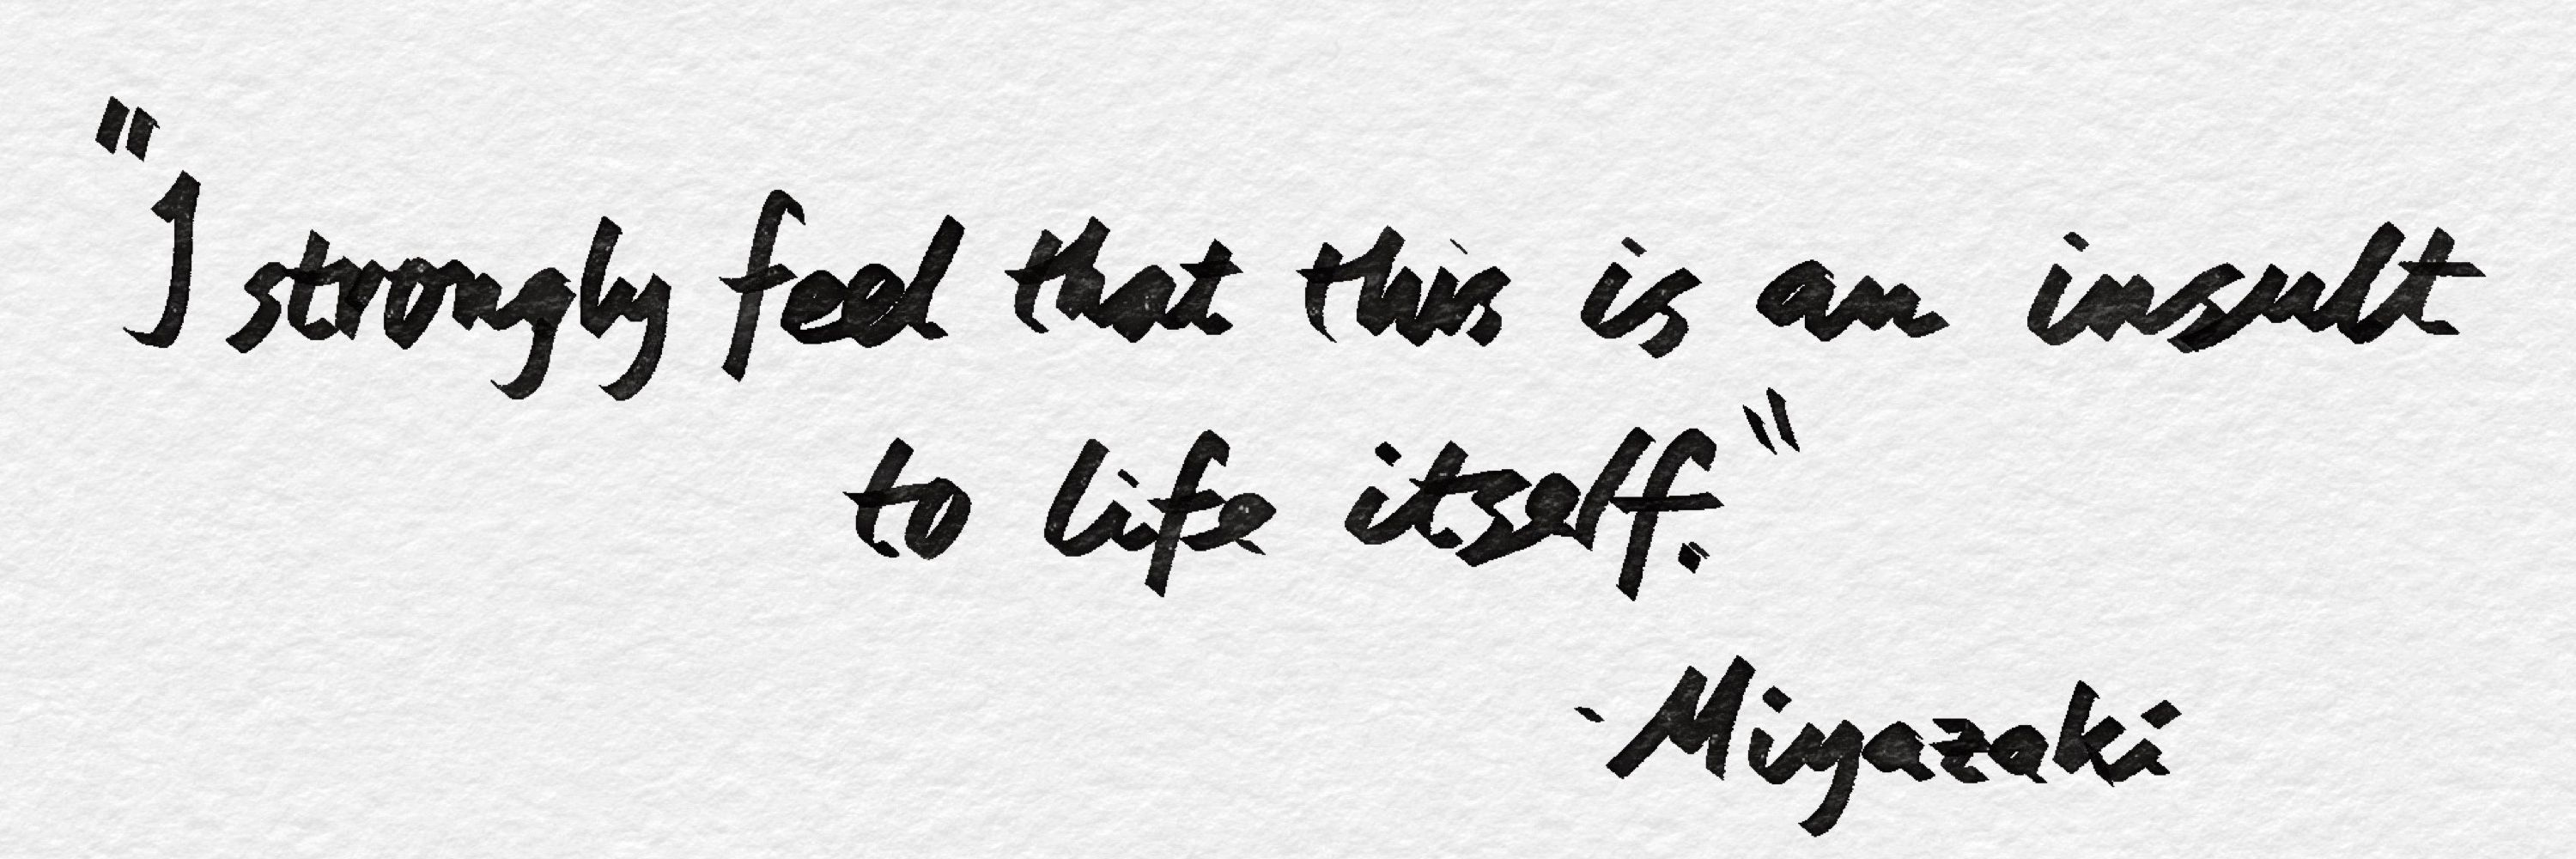 "I strongly feel that this is an insult
to life itself."
-Miyazaki